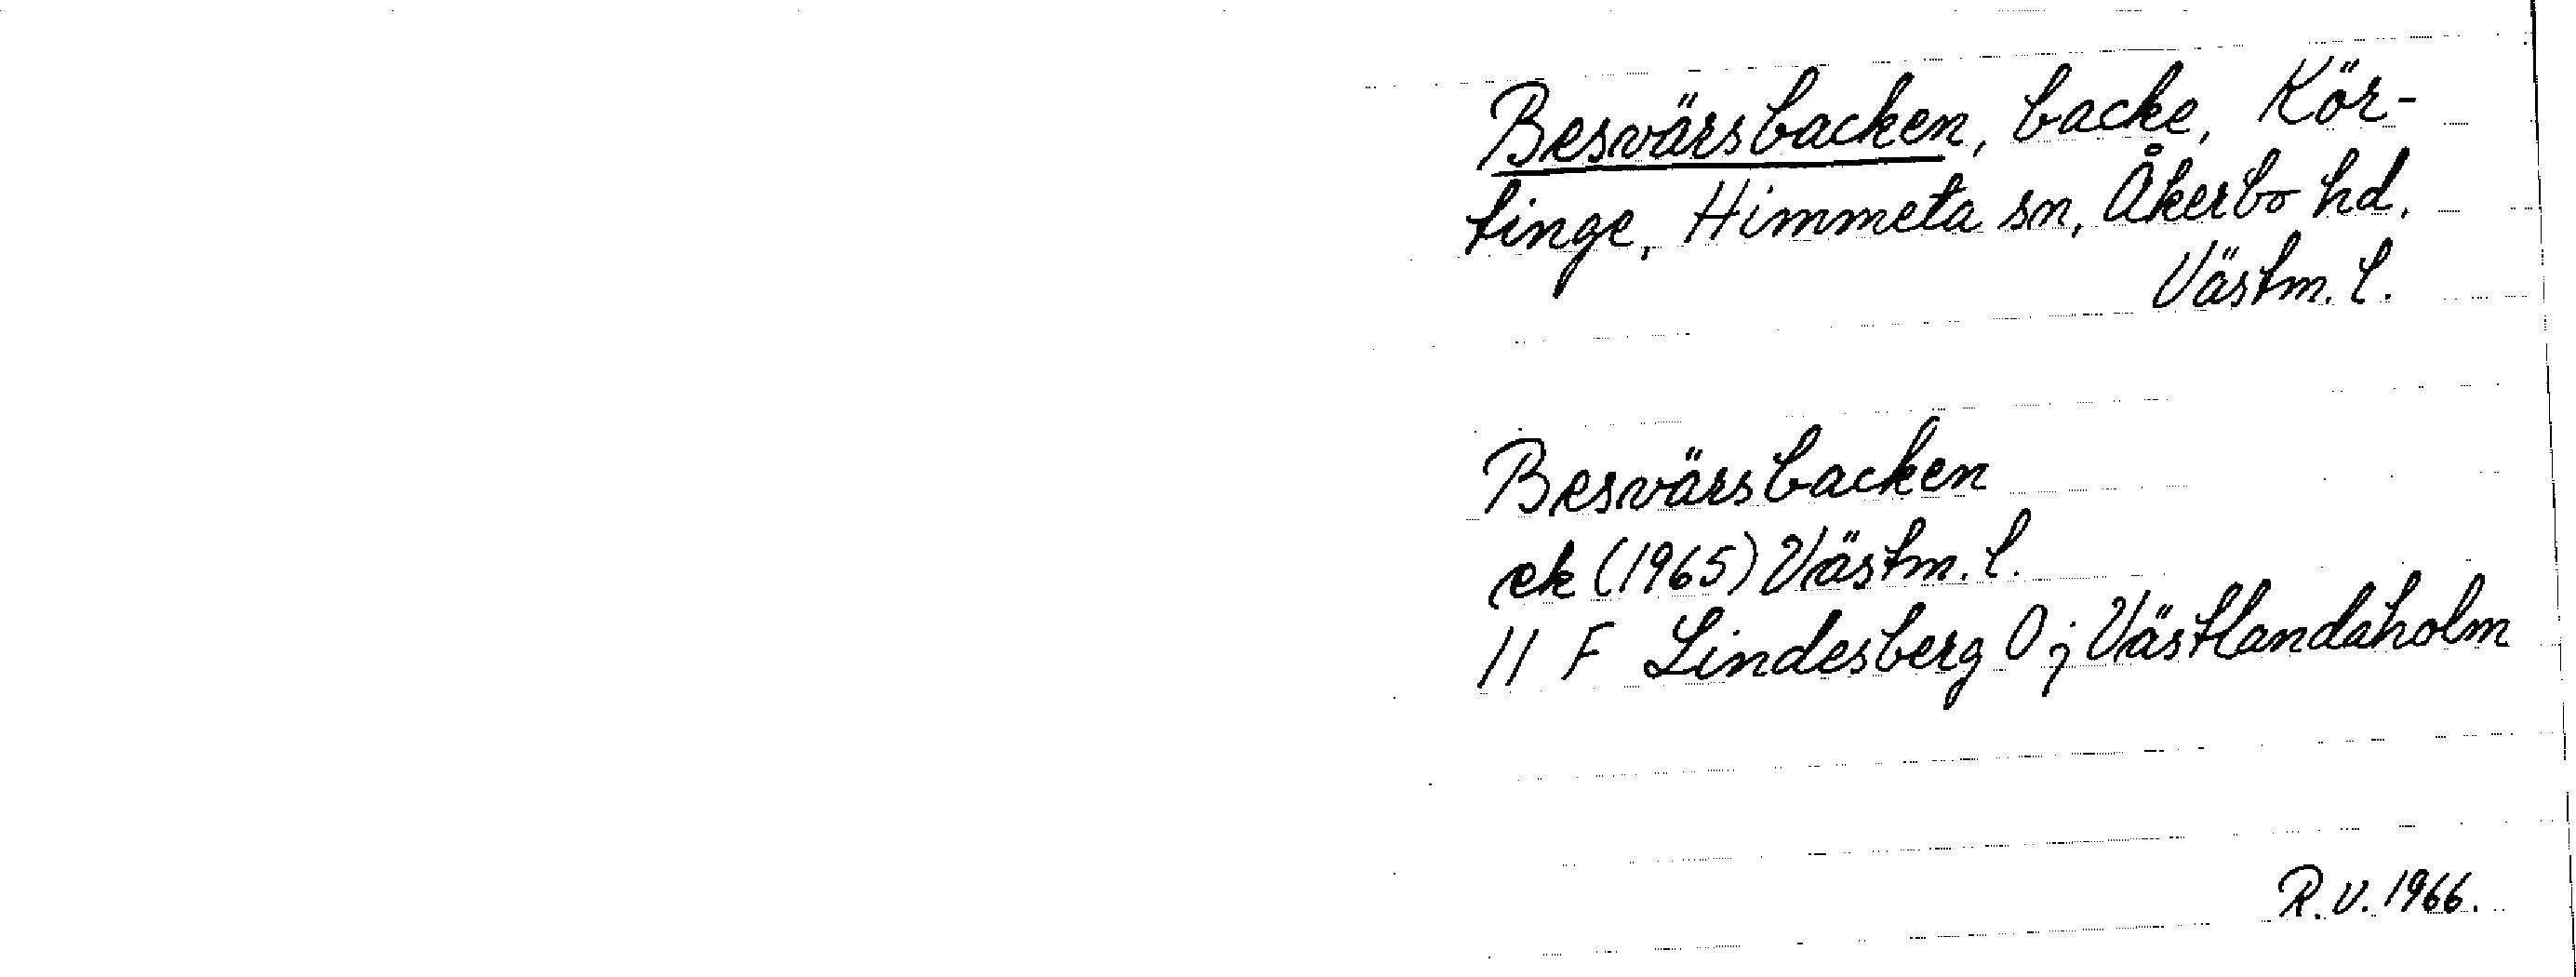 Besvärsbacken, backe, Kör-
tinge, Himmeta sn, Åkerbo hd.
Västm. l.
Besvärsbacken
ek (1965) Västm. l.
11 F Lindesberg O j Västlandaholm
R.V. 1966.